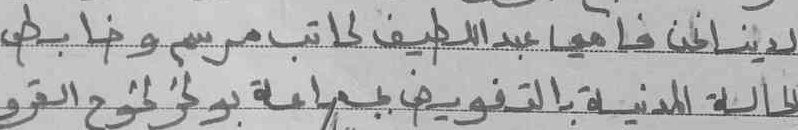 لدينا نحن فاهيا عبد اللطيف كاتب مرسم وضابط
الحالة المدنية بالتفويض بجماعة بولخلخوح القرو